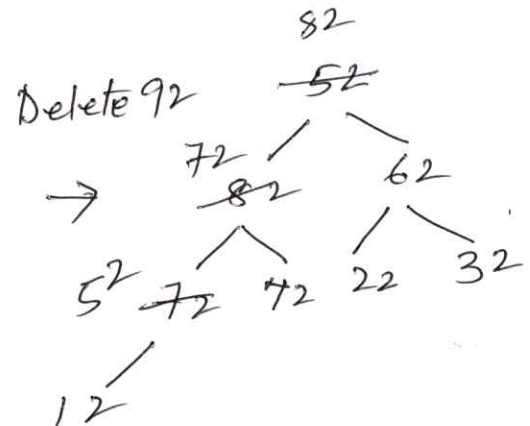 82
Delete 92 52
72
→ 82 62
52 72 42 22 32
12